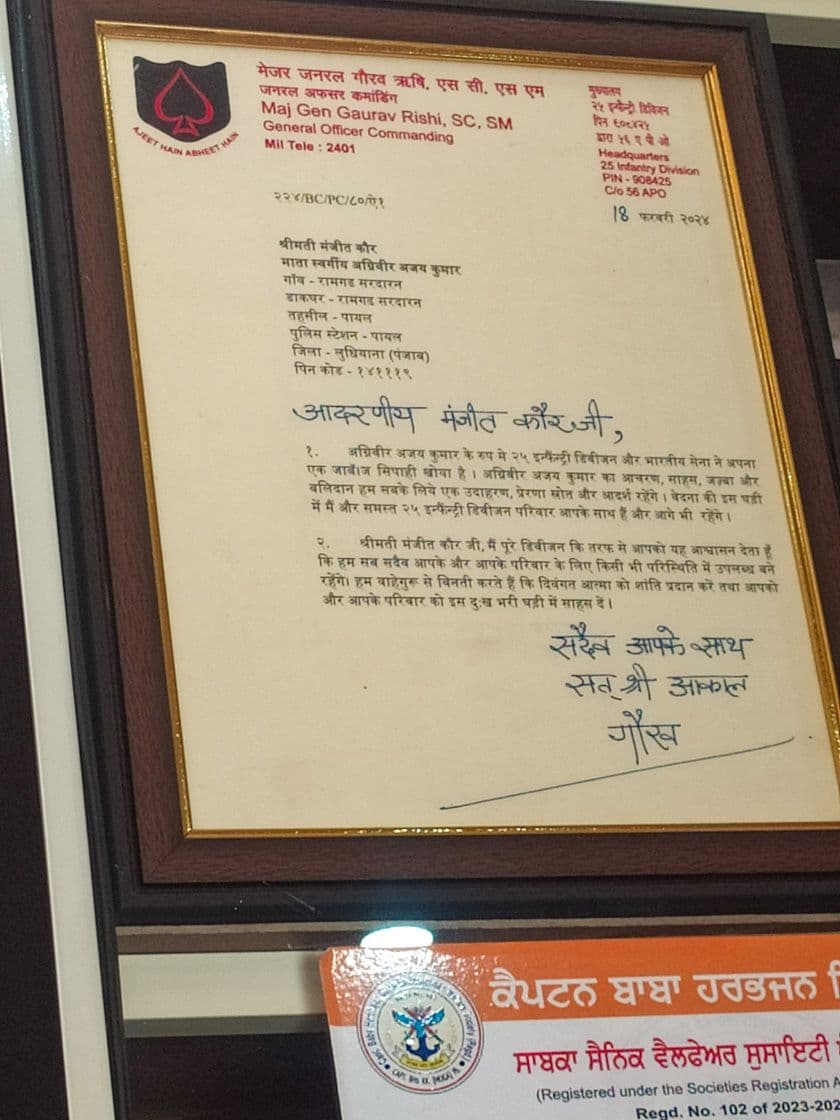 मेजर जनरल गौरव ऋषि, एस सी, एस एम
जनरल अफसर कमांडिंग
Maj Gen Gaurav Rishi, SC, SM
General Officer Commanding
Mil Tele : 2401
AJEET HAIN ABHEET HAIN
मुख्यालय
२५ इन्फैन्ट्री डिविजन
पिन ९०८४२५
द्वारा ५६ ए पी ओ
Headquarters
25 Infantry Division
PIN - 908425
C/o 56 APO
२२४/BC/PC/८०/ऐ१
18 फरवरी २०२४
श्रीमती मंजीत कौर
माता स्वर्गीय अग्निवीर अजय कुमार
गाँव - रामगड सरदारन
डाकघर - रामगड सरदारन
तहसील - पायल
पुलिस स्टेशन - पायल
जिला - लुधियाना (पंजाब)
पिन कोड - १४१११९
आदरणीय मंजीत कौर जी,
१. अग्निवीर अजय कुमार के रुप मे २५ इन्फैंन्ट्री डिवीजन और भारतीय सेना ने अपना
एक जाबाँज सिपाही खोया है । अग्निवीर अजय कुमार का आचरण, साहस, जज़्बा और
बलिदान हम सबके लिये एक उदाहरण, प्रेरणा स्रोत और आदर्श रहेंगे । वेदना की इस घड़ी
में मैं और समस्त २५ इन्फैंन्ट्री डिवीजन परिवार आपके साथ हैं और आगे भी रहेंगे ।
२. श्रीमती मंजीत कौर जी, मैं पूरे डिवीजन कि तरफ से आपको यह आश्वासन देता हूँ
कि हम सब सदैव आपके और आपके परिवार के लिए किसी भी परिस्थिति में उपलब्ध बने
रहेंगे। हम वाहेगुरू से बिनती करते हैं कि दिवंगत आत्मा को शांति प्रदान करें तथा आपको
और आपके परिवार को इस दुःख भरी घड़ी में साहस दें ।
सदैव आपके साथ
सत् श्री अकाल
गौरव
ਕੈਪਟਨ ਬਾਬਾ ਹਰਭਜਨ
ਸਾਬਕਾ ਸੈਨਿਕ ਵੈਲਫੇਅਰ ਸੁਸਾਇਟੀ
(Registered under the Societies Registration
Regd. No. 102 of 2023-202